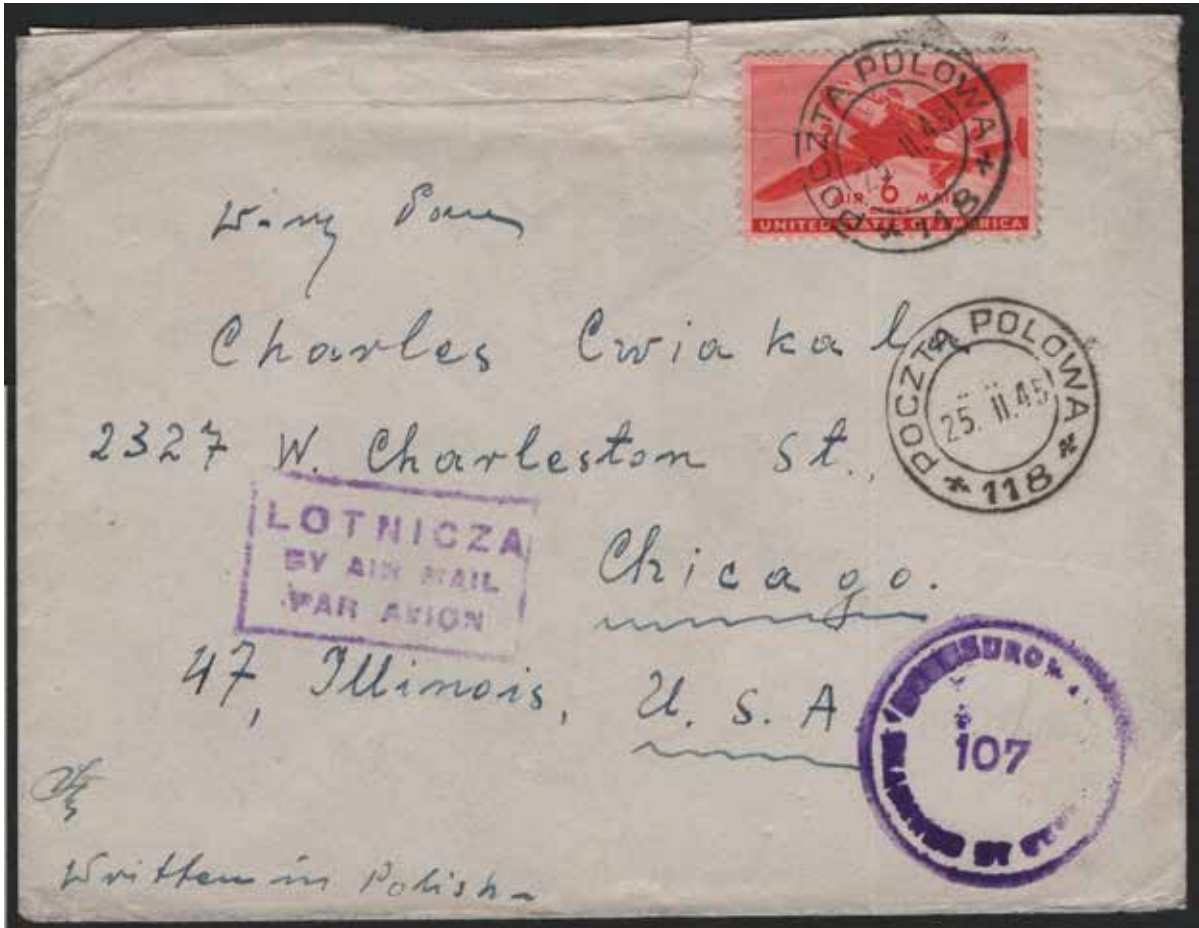 POCZTA POLOWA
25. II. 45
* 118 *
AIR 6 MAIL
UNITED STATES OF AMERICA
Pan
Charles Cwiakal
POCZTA POLOWA
25. II. 45
* 118 *
2327 W. Charleston St.,
LOTNICZA
BY AIR MAIL
PAR AVION
Chicago.
47, Illinois, U. S. A
107
Written in Polish